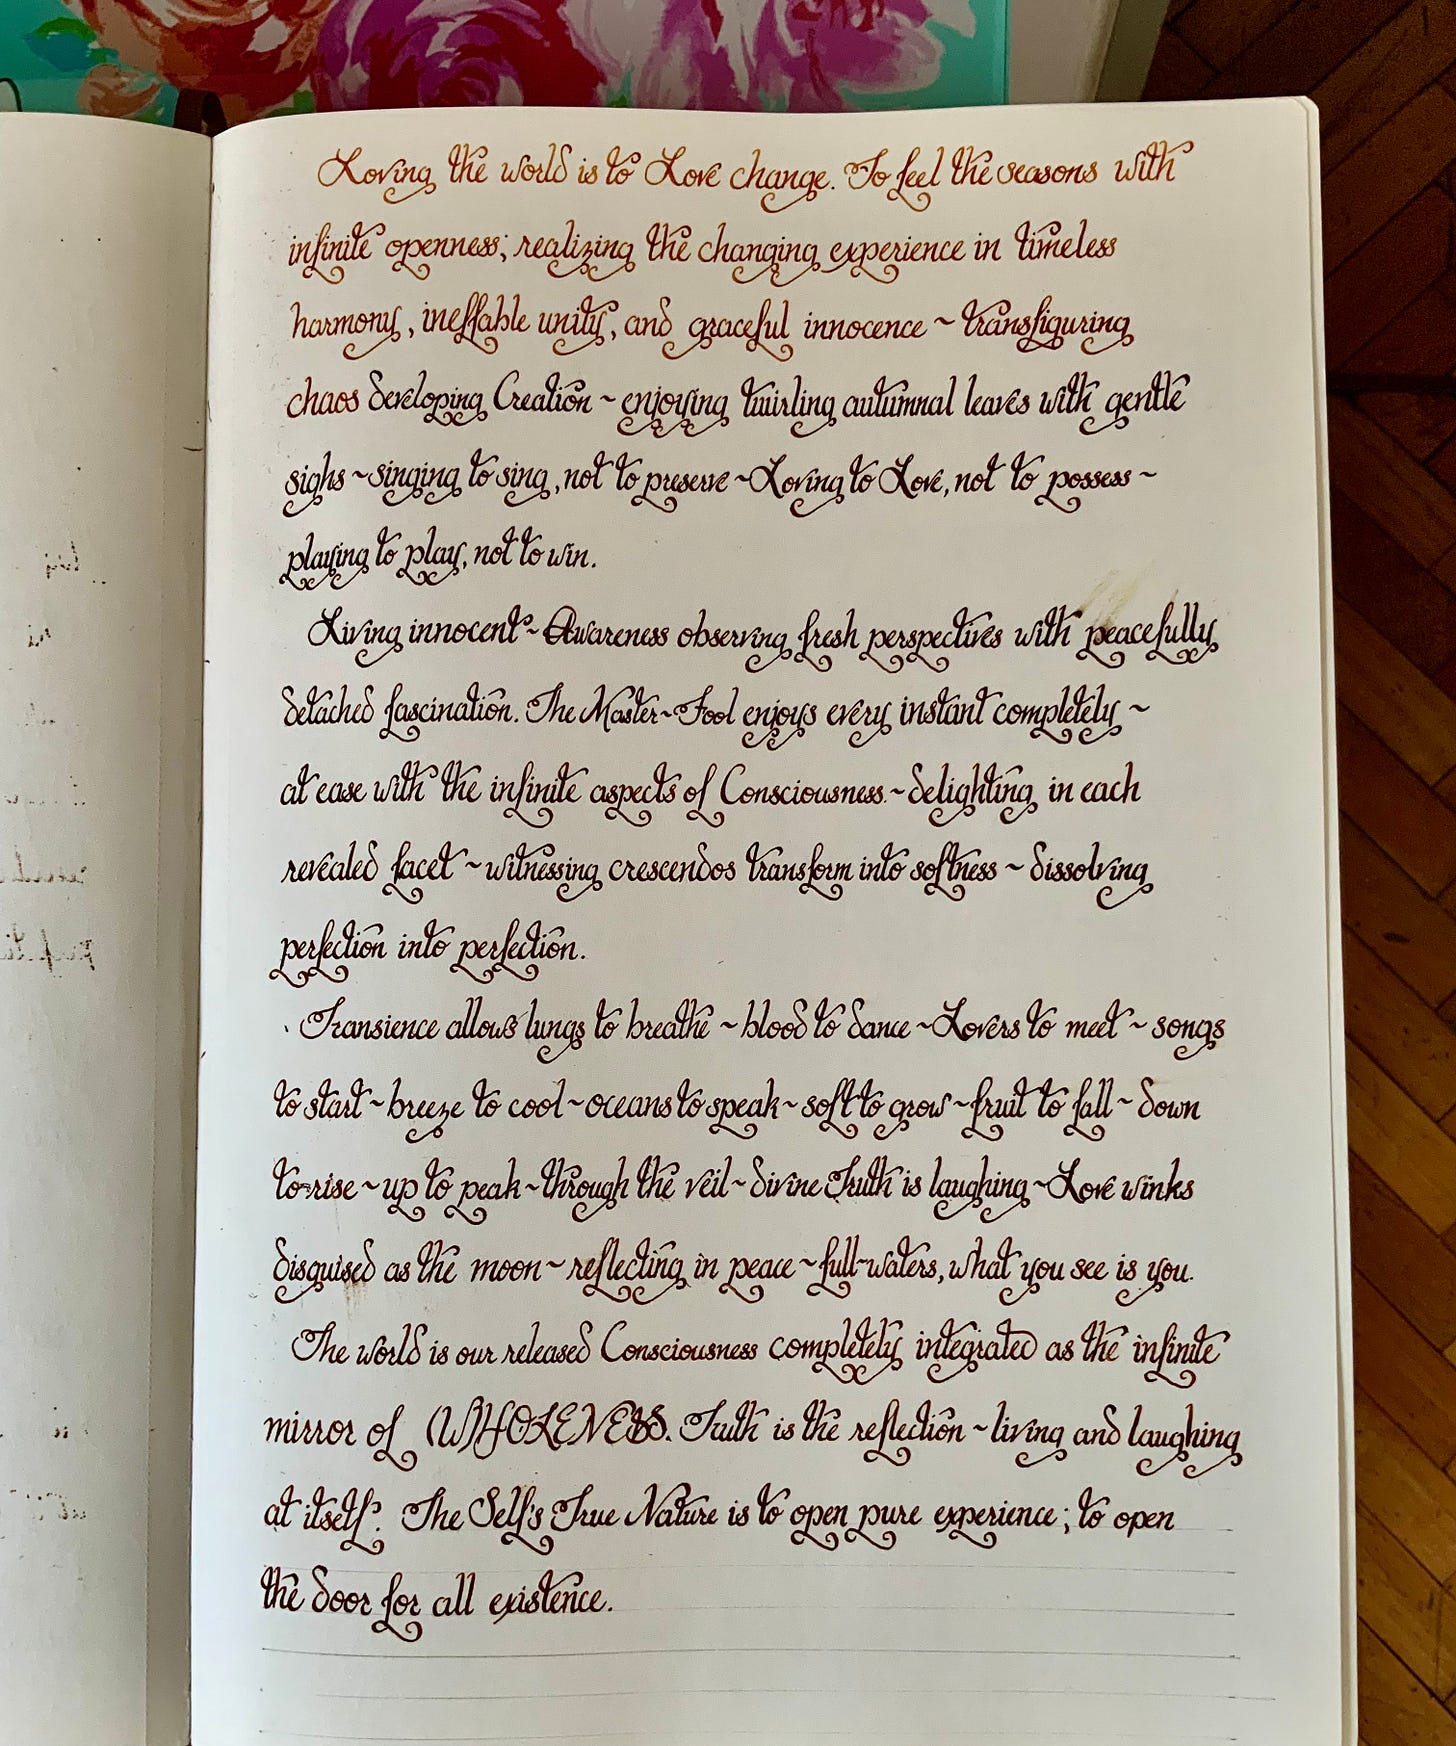 Loving the world is to Love change. To feel the seasons with
infinite openness; realizing the changing experience in timeless
harmony, ineffable unity, and graceful innocence ~ transfiguring
chaos developing Creation ~ enjoying twirling autumnal leaves with gentle
sighs ~ singing to sing, not to preserve ~ Loving to Love, not to possess ~
playing to play, not to win.
Living innocent ~ Awareness observing fresh perspectives with peacefully
detached fascination. The Master ~ Fool enjoys every instant completely ~
at ease with the infinite aspects of Consciousness ~ delighting in each
revealed facet ~ witnessing crescendos transform into softness ~ dissolving
perfection into perfection.
Transience allows lungs to breathe ~ blood to dance ~ Lovers to meet ~ songs
to start ~ breeze to cool ~ oceans to speak ~ soft to grow ~ fruit to fall ~ down
to rise ~ up to peak ~ through the veil ~ divine Truth is laughing ~ Love winks
disguised as the moon ~ reflecting in peace ~ full ~ waters, what you see is you.
The world is our released Consciousness completely integrated as the infinite
mirror of (W)HOLENESS. Truth is the reflection ~ living and laughing
at itself. The Self's True Nature is to open pure experience; to open
the door for all existence.